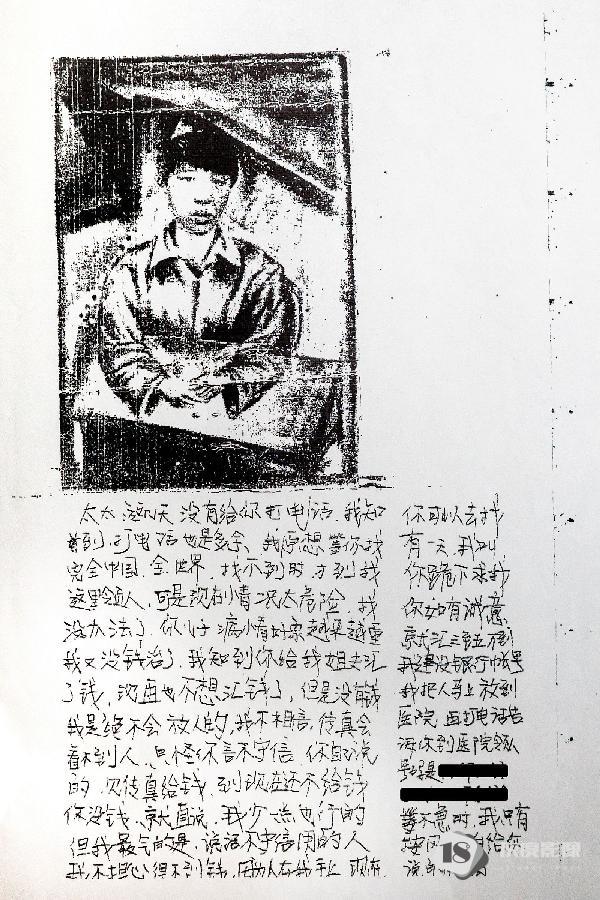 太太 这几天 没有给你打电话 我知
到 打电话也是多余、我原想等你找
完全中国 全世界 找不到时 才到我
这里领人,可是现在情况太危险 我
没办法了 你儿子病情好象越来越重
我又没钱治了 我知到你给我姐夫汇
了钱, 也不想汇钱了, 但是没有钱
我是绝不会放人的, 我不相信, 传真会
看不到人 只怪你言不守信 你自己说
的 传真给钱, 到现在还不给钱
你没钱 直说 我少一点也行的
但我最气的是, 说话不守信用的人
我不担心得不到钱,因为人在我手上 现在
你可以去找
有一天 我叫
你跪下求我
你如有诚意、
我还没银行帐号
我把人马上放到
医院 打电话告
诉你到医院领人
号是
等不急时, 我只有